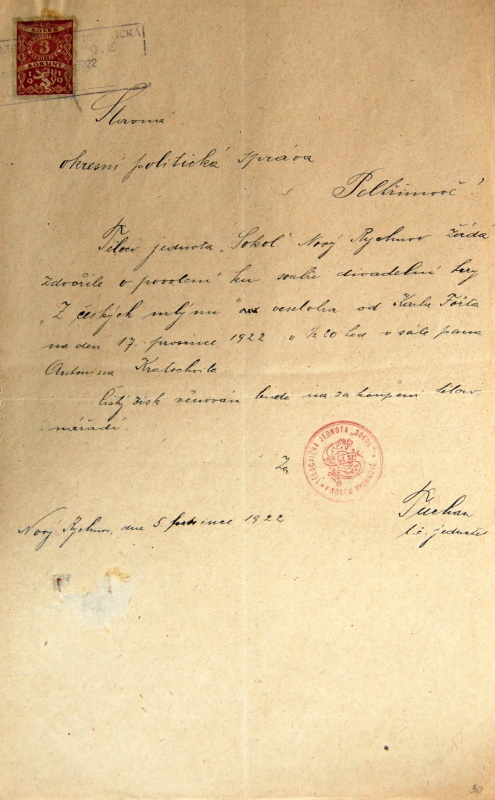 KOLEK
3
KORUNY
1922
Slavná
okresní politická správa
v Pelhřimově!
Tělocv. jednota „Sokol“ Nový Rychnov žádá
zdvořile o povolení ku divadelní hry
„Z českých mlýnů“ veselohra od Karla
na den 17. prosince 1922 v 1/2 20 hod v sále pana
Antonína Kratochvila.
Čistý zisk věnován bude na zakoupení tělocv.
nářadí.
TĚLOCVIČNÁ JEDNOTA „SOKOL“
V NOVÉM RYCHNOVĚ
Za
Nový Rychnov, dne 5. prosince 1922
Puchar
t.č. jednatel
30